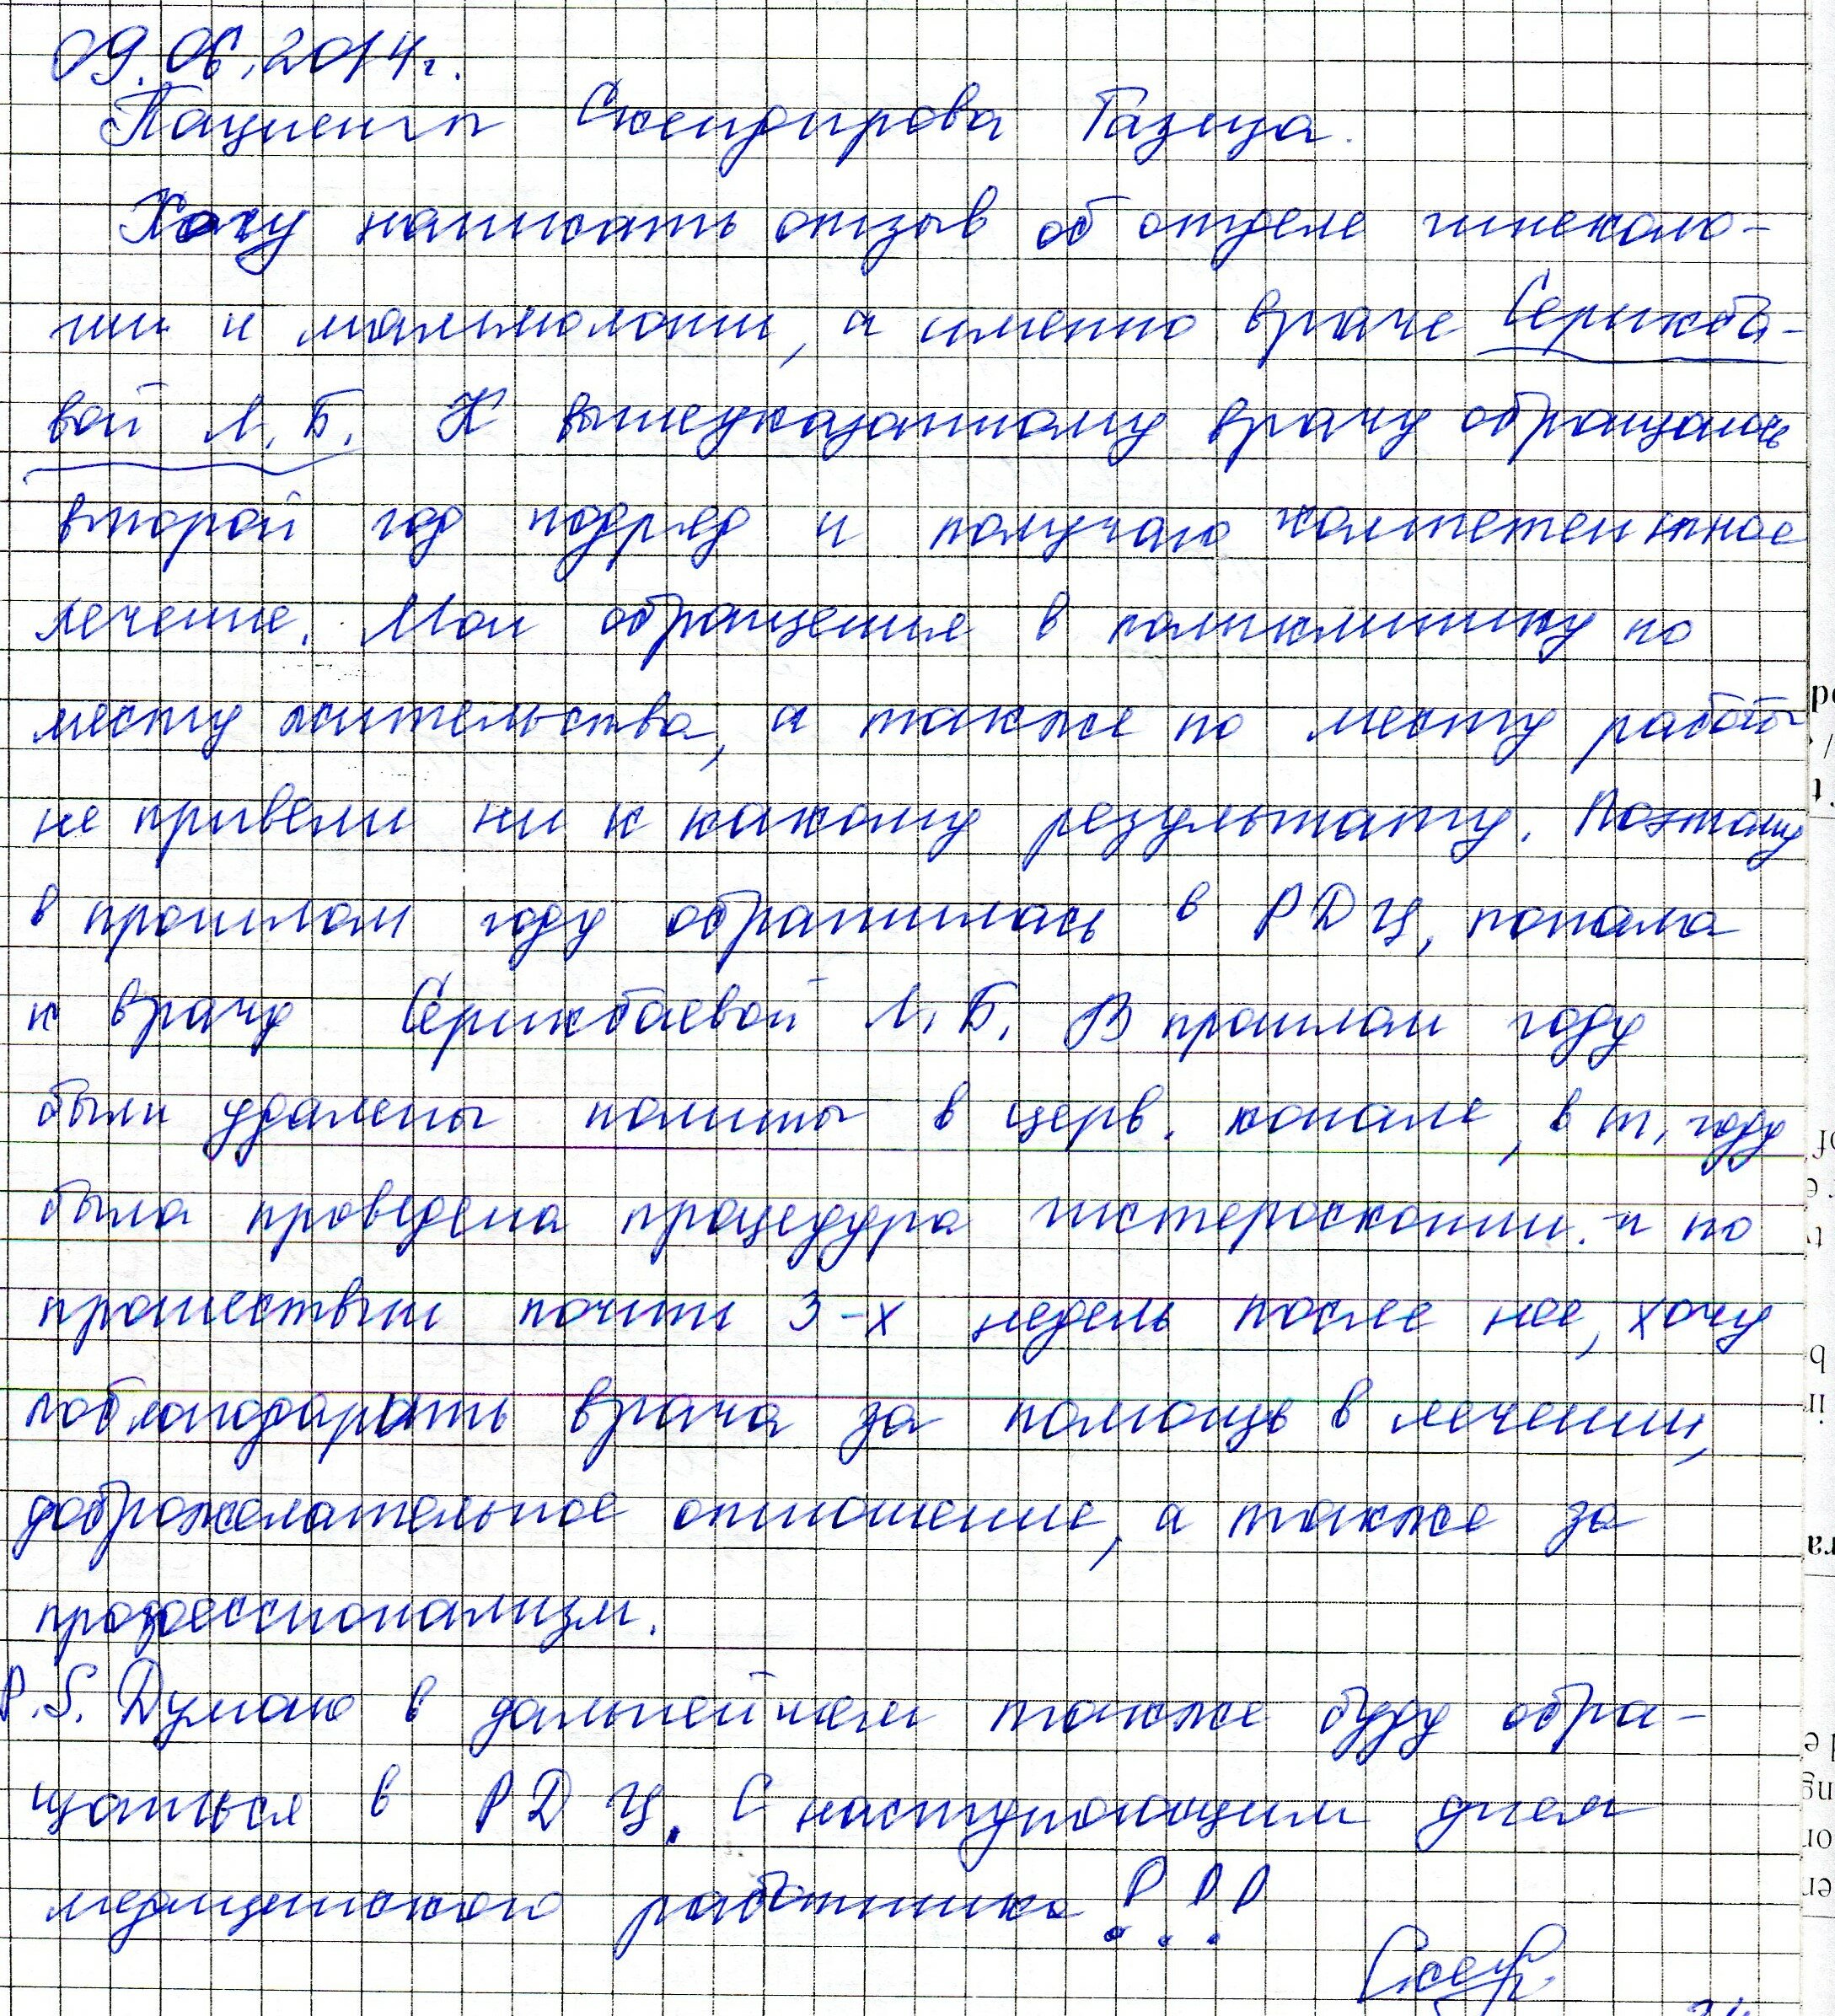 09.06.2014г.
Пациенты Скендирова Газиза.
Хочу написать отзыв об отделе гинеколо-
гии и маммологии, а именно враче Серикба-
вой Л.Б. К вышеуказанному врачу обращаюсь
второй год подряд и получаю компетентное
лечение. Мои обращения в поликлинику по
месту жительства, а также по месту работы
не привели ни к какому результату. Поэтому
в прошлом году обратилась в РДЦ, попала
к врачу Серикбаевой Л.Б. В прошлом году
были удалены полипы в церв. канале, в т. году
была проведена процедура гистероскопии. и по
прошествии почти 3-х недель после нее, хочу
поблагодарить врача за помощь в лечении,
доброжелательное отношение, а также за
профессионализм.
P.S. Думаю в дальнейшем также буду обра-
щаться в РДЦ. С наступающим днем
медицинского работника!!!